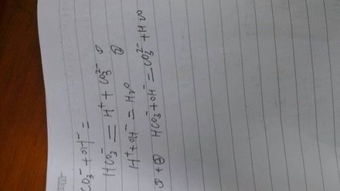 CO₃⁻ + OH⁻ =
HCO₃⁻ = H⁺ + CO₃²⁻ ①
H⁺ + OH⁻ = H₂O ②
① + ② HCO₃⁻ + OH⁻ = CO₃²⁻ + H₂O